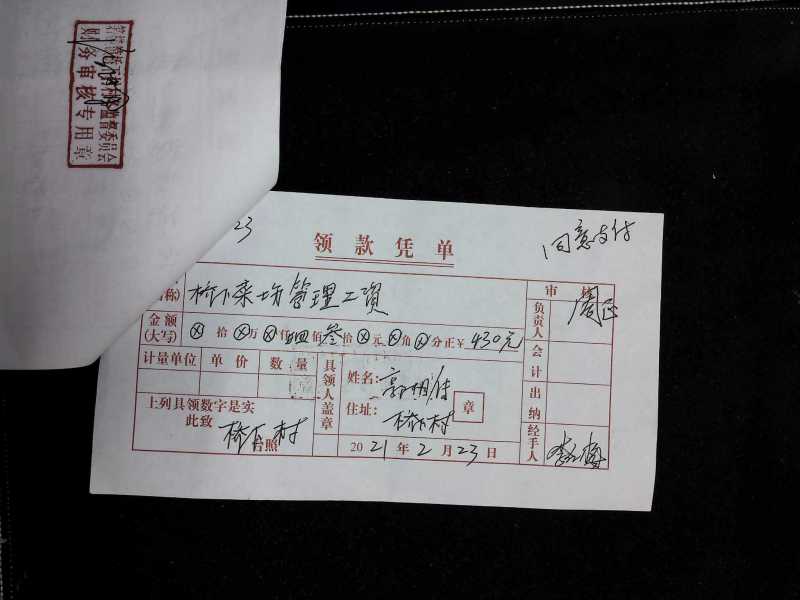 村务监督委员会
财务审核专用章
23
同意支付
领款凭单
名称) 桥下菜场管理工资
审 核
金额
(大写) ⊗拾⊗万⊗仟肆佰叁拾⊗元⊗角⊗分正¥430元
负责人 周
计量单位 单价 数量
具领人盖章
姓名:郭
会计
住址:桥下村
章
出纳
上列具领数字是实
此致
桥下村
台照
2021年2月23日
经手人 李